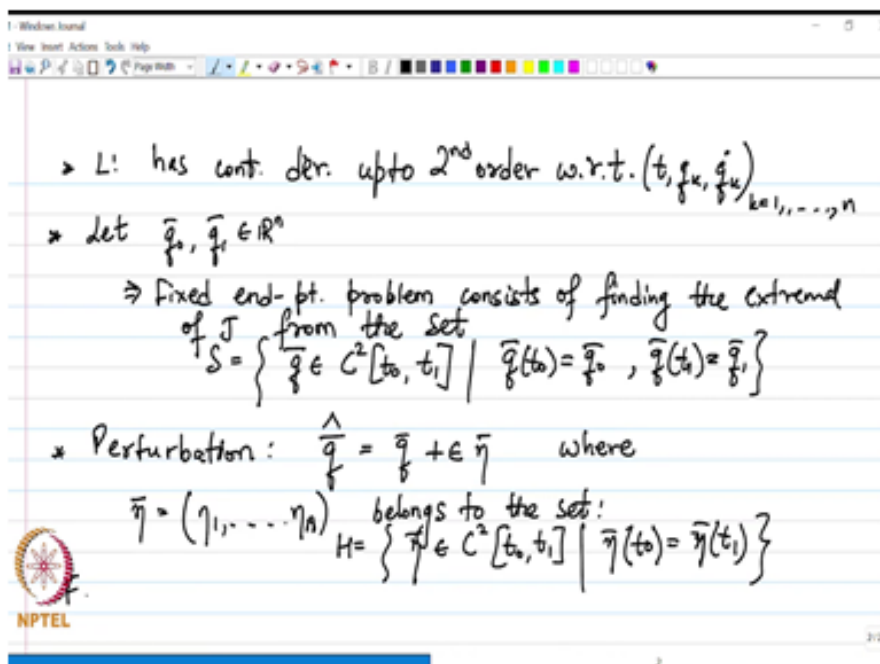 - Windows Journal
View Insert Actions Tools Help
Page Width
B I
> L: has cont. der. upto 2nd order w.r.t. (t, qk, q̇k) k=1,,...,n
* Let q̄₀, q̄₁ ∈ ℝⁿ
⇒ Fixed end-pt. problem consists of finding the extremal
of J from the set
S = { q̄ ∈ C²[t₀, t₁] | q̄(t₀) = q̄₀ , q̄(t₁) = q̄₁ }
* Perturbation: q̄̂ = q̄ + ϵ η̄ where
η̄ = (η₁,.....ηₙ) belongs to the set:
H = { η̄ ∈ C²[t₀, t₁] | η̄(t₀) = η̄(t₁) }
NPTEL